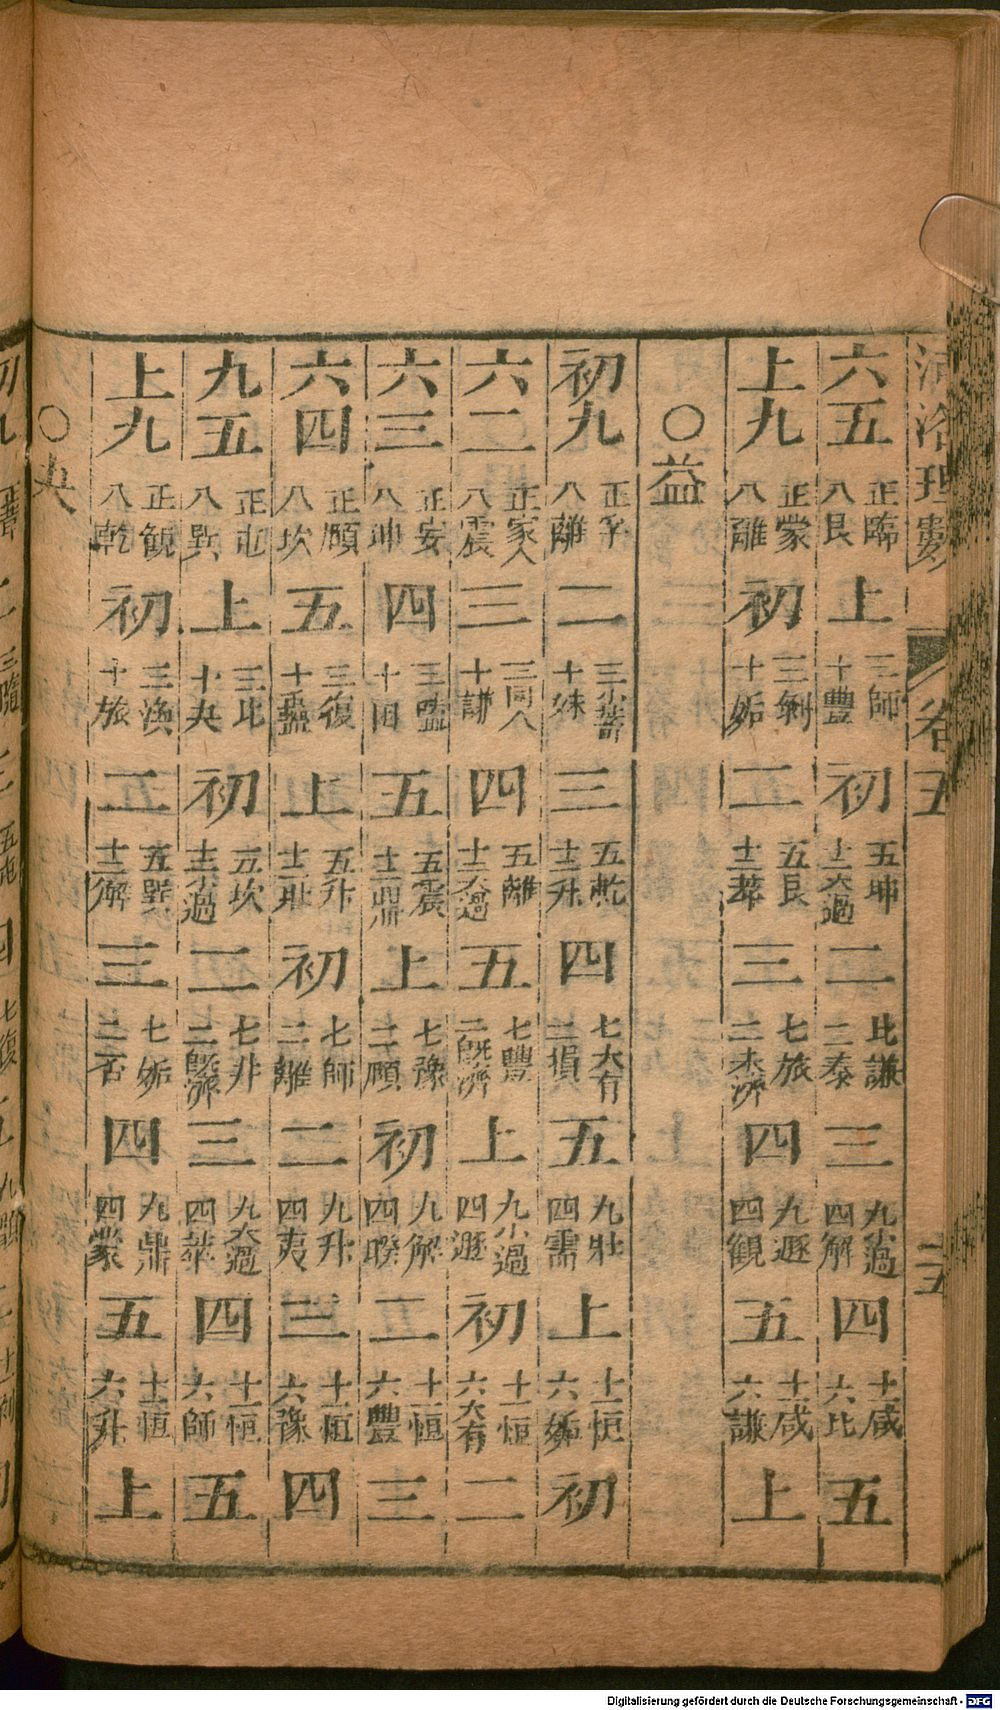 河洛理數 卷五 二五
六五 正臨 八艮 上 三師 十豐 初 五坤 十二大過 二 比謙 二泰 三 九小過 四解 四 十一咸 六比 五
上九 正蒙 八離 初 三剝 十姤 二 五艮 十二萃 三 七旅 二未濟 四 九遯 四觀 五 十一咸 六謙 上
○益
初九 正孚 八離 二 三小畜 十妹 三 五乾 十二升 四 七大有 二損 五 九壯 四需 上 十一恒 六姤 初
六二 正家人 八震 三 三同人 十謙 四 五離 十二大過 五 七豐 二既濟 上 九小過 四遯 初 十一恒 六大有 二
六三 正安 八坤 四 三噬 十困 五 五震 十二鼎 上 七豫 二頤 初 九解 四睽 二 十一恒 六豐 三
六四 正頤 八坎 五 三復 十蠱 上 五升 十二壯 初 七師 二離 二 九升 四夷 三 十一恒 六豫 四
九五 正屯 八巽 上 三比 十夬 初 五坎 十二小過 二 七井 二既濟 三 九大過 四萃 四 十一恒 六師 五
上九 正觀 八乾 初 三渙 十旅 二 五巽 十二解 三 七姤 二否 四 九鼎 四蒙 五 十一恒 六升 上
○夬
Digitalisierung gefördert durch die Deutsche Forschungsgemeinschaft - DFG